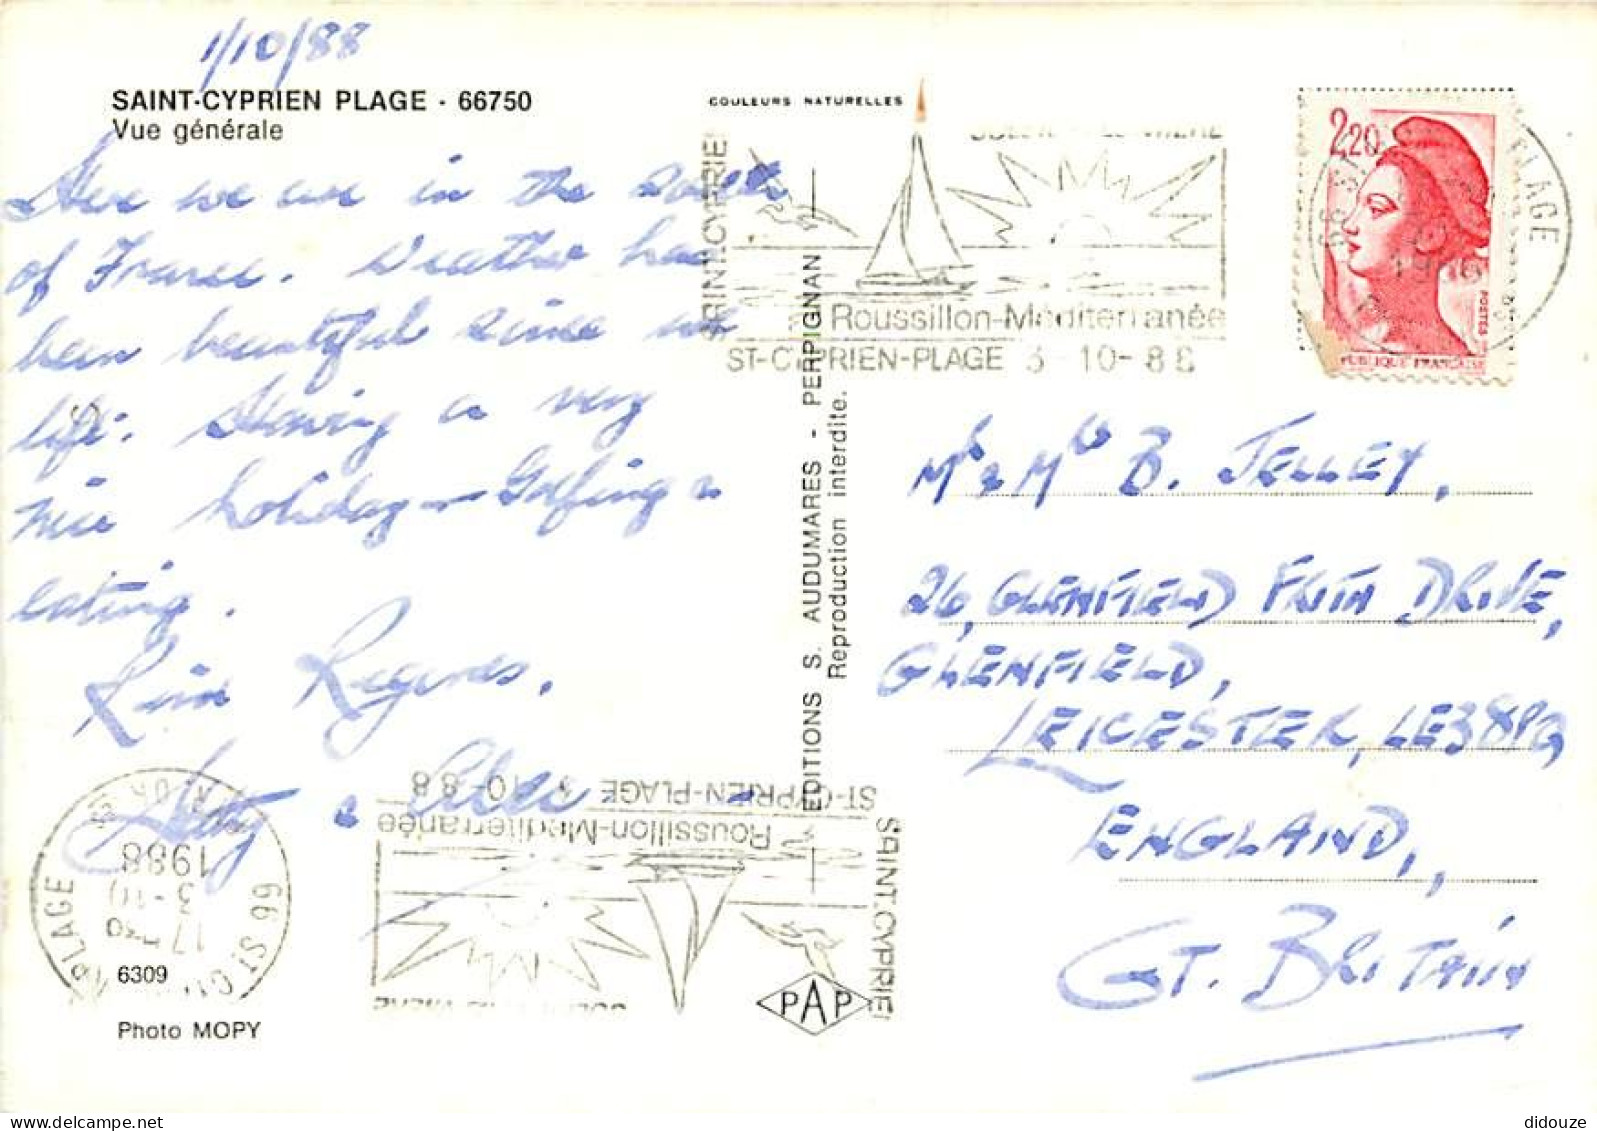 1/10/88
SAINT-CYPRIEN PLAGE - 66750
Vue générale
Here we are in the South
of France. Weather has
been beautiful since we
left. Having a very
nice holiday - Golfing &
eating.
Kind Regards,
6309
Photo MOPY
COULEURS NATURELLES
EDITIONS S. AUDUMARES - PERPIGNAN
Reproduction interdite.
PAP
SAINT.CYPRIEN
Roussillon-Méditerranée
ST-CYPRIEN-PLAGE 3-10-88
2,20
POSTES
REPUBLIQUE FRANÇAISE
Mr & Mrs B. JELLEY,
26, GLENFIELD FRITH DRIVE,
GLENFIELD,
LEICESTER, LE3 8PQ
ENGLAND,
GT. BRITAIN
ST-CYPRIEN-PLAGE 3-10-88
Roussillon-Méditerranée
SAINT.CYPRIEN
66 ST CYPRIEN PLAGE
17H30
3-10
1988
didouze